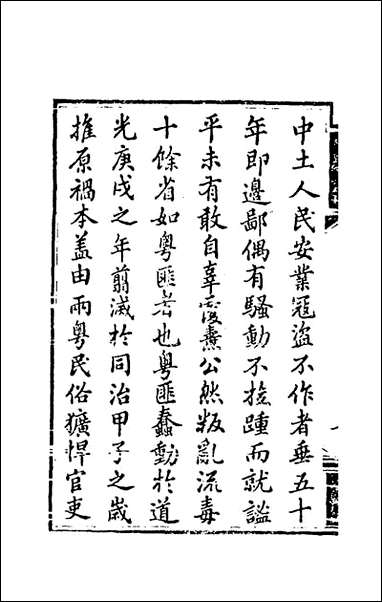 中土人民安業冦盜不作者垂五十
年即邊鄙偶有騷動不旋踵而就謐
平未有敢自辜覆燾公然叛亂流毒
十餘省如粵匪者也粵匪蠢動於道
光庚戌之年翦滅於同治甲子之歲
推原禍本蓋由兩粵民俗獷悍官吏